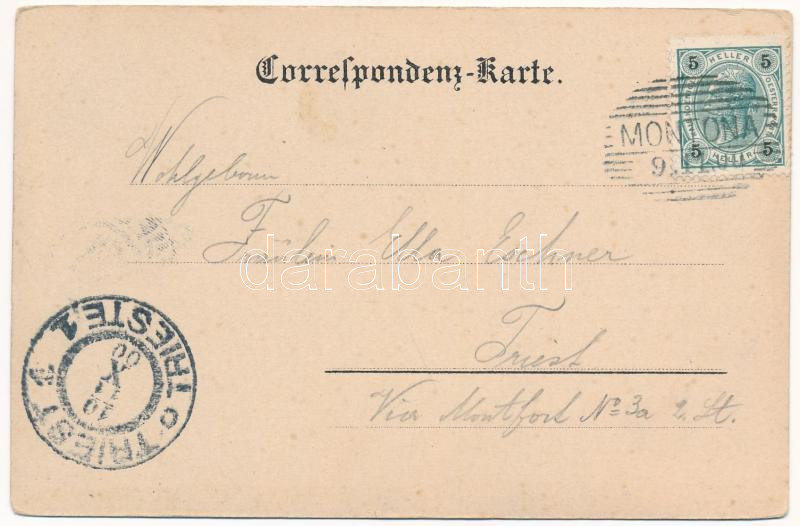 Correspondenz-Karte.
5 HELLER 5
5 HELLER 5
MONTONA
Wohlgeborn
Fräulein Edda Eschner
darabanth
Triest
Via Montfort No 3a 2. St.
TRIEST 1 TRIESTE 1
10
X
00